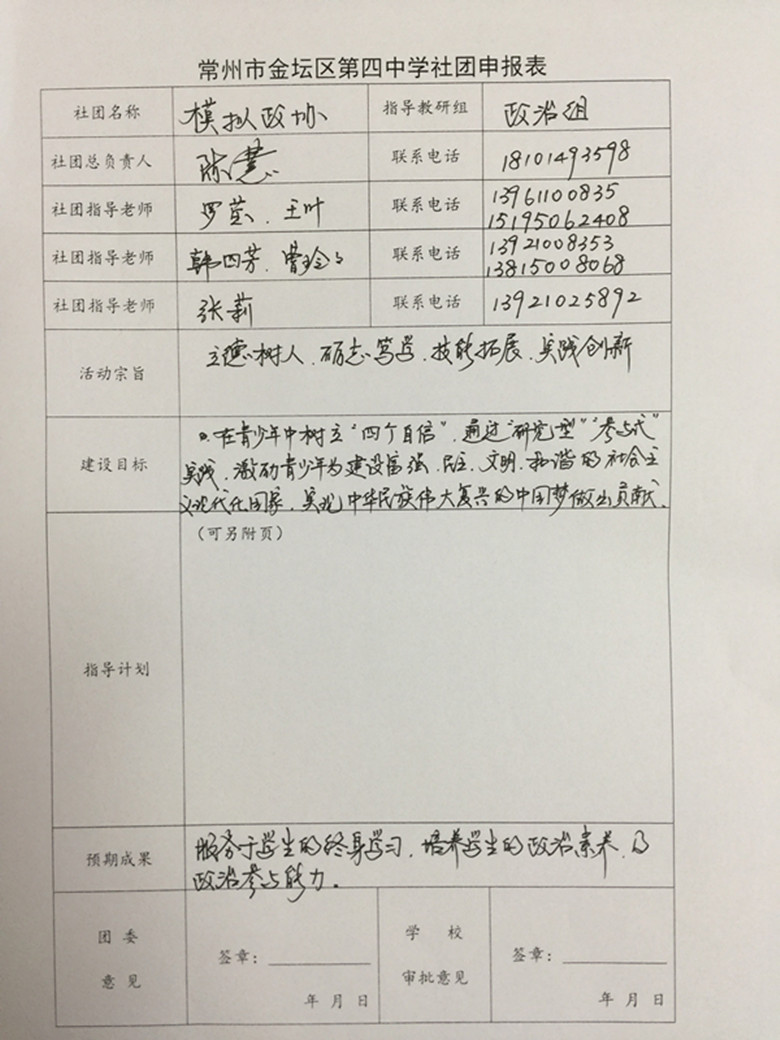 常州市金坛区第四中学社团申报表
社团名称 模拟政协 指导教研组 政治组
社团总负责人 陈慧 联系电话 18101493598
社团指导老师 罗萤、王叶 联系电话 13961100835
15195062408
社团指导老师 韩四芳、曹玲 联系电话 13921008353
13815008068
社团指导老师 张莉 联系电话 13921025892
活动宗旨 立德树人、砺志笃学、技能拓展、实践创新
在青少年中树立“四个自信”,通过“研究型”“参与式”
建设目标 实践,激励青少年为建设富强、民主、文明、和谐的社会主
义现代化国家,实现中华民族伟大复兴的中国梦做出贡献。
(可另附页)
指导计划
预期成果 服务于学生的终身学习,培养学生的政治素养、及
政治参与能力。
团委 学校
签章: 签章:
意见 审批意见
年月日 年月日